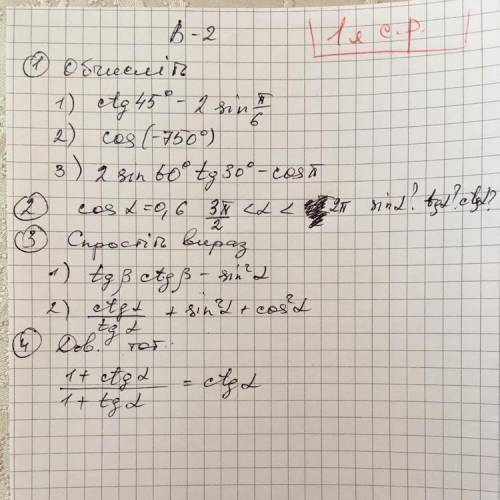 В-2
1я с.р.
① Обчисліть
1) ctg 45° - 2 sin π/6
2) cos (-750°)
3) 2 sin 60° tg 30° - cos π
② cos α = 0,6 3π/2 < α < 2π sin α? tg α? ctg α?
③ Спростіть вираз
1) tg β ctg β - sin²α
2) ctg α / tg α + sin²α + cos²α
④ Дов. тот.
1 + ctg α / 1 + tg α = ctg α